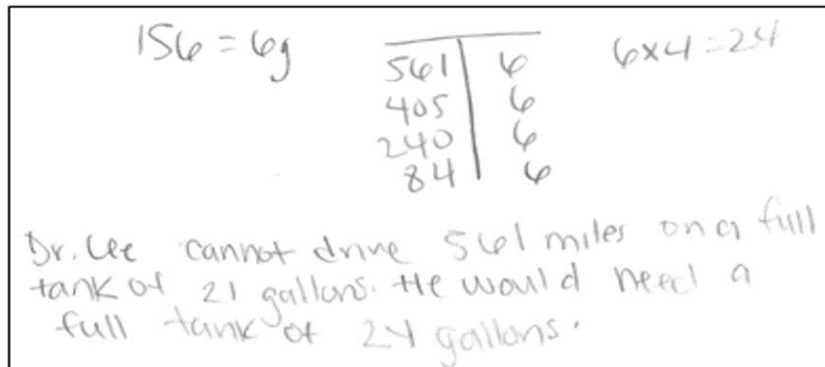 156 = 6g
561 | 6
405 | 6
240 | 6
84 | 6
6x4=24
Dr. Lee cannot drive 561 miles on a full
tank of 21 gallons. He would need a
full tank of 24 gallons.